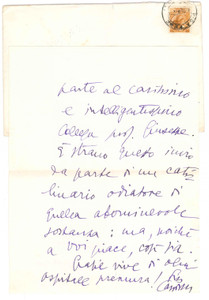 parte al carissimo
e intelligentissimo
collega prof. Giuseppe.
È strano questo invio
da parte di un cato
linario odiatore di
quella abominevole
sostanza: ma, poiché
a voi piace, così sia.
Grazie vive di ogni
ospitale premura!